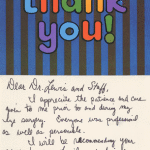 thank
you!
Dear Dr. Lewis and Staff,
I appreciate the patience and care
given to me prior to and during my
surgery. Everyone was professional
as well as personable.
I will be recommending your